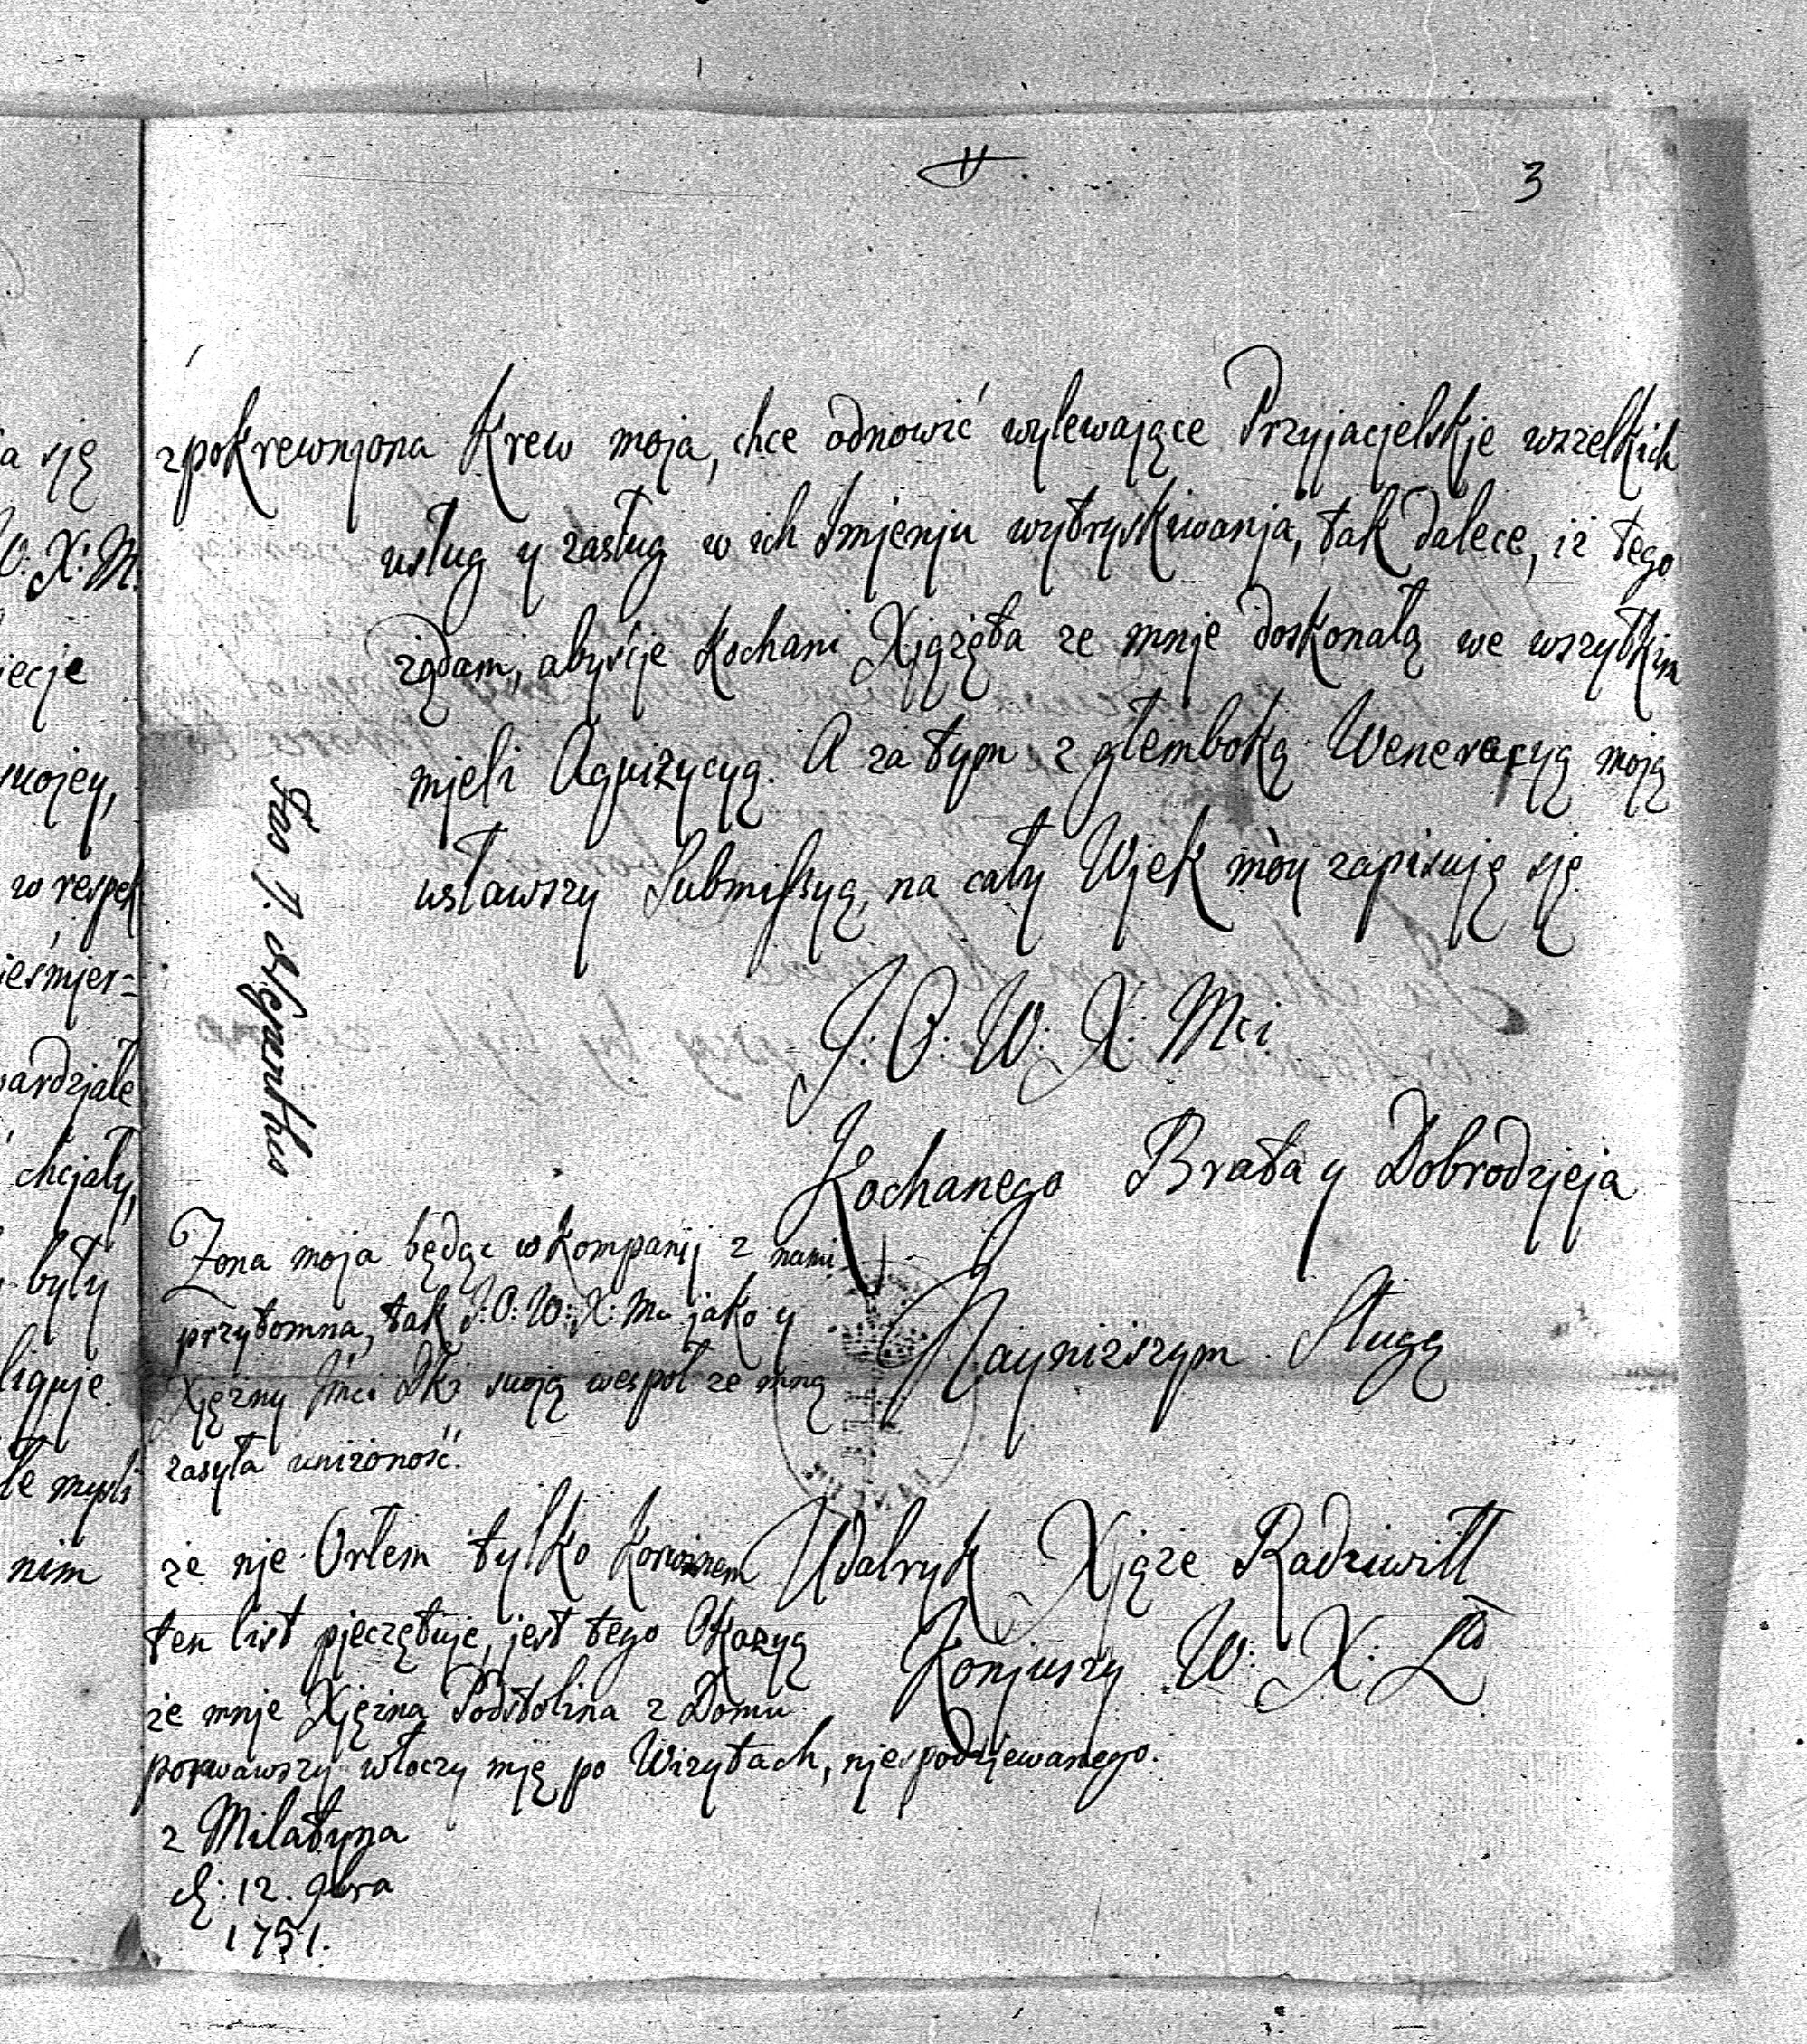 3
zpokrewnjona Krew moja, chce odnowić wylewające Przyjacjelskje wszelkich
usług y zasług w ich Imjenju wytryskiwanja, tak dalece, iż tego
żądam, abyśćje kochani Xjążęta ze mnje doskonałą we wszytkim
mjeli Aquizycyą. A za tym z głemboką Weneracyą moją
usławszy Submissyą, na cały Wjek mòy zapisuję sję
J: O: W: X: Mci
Kochanego Brata y Dobrodzjeja
Nayniższym Sługą
Udalryk Xjąże Radziwiłł
Konjuszy W: X: L
Zona moja będąc w kompanij z nami
przytomna, tak J: O: W: X: Mci jako y
Xjężny Jmci Dki swoją wespoł ze mną
zasyła uniżoność.
że nje Orłem tylko
ten list pjeczętuje, jest tego Okazyą
że mnje Xjężna Podstolina z Domu
porwawszy włoczy mję po Wizytach, njespodzjewanego.
z Milatyna
d: 12. 9bra
1751.
a sję
W: X: M.
jecje
mojey,
w respek
ieśmjer-
ardzjałe
chcjały,
były
liguje.
łe myśli
nim